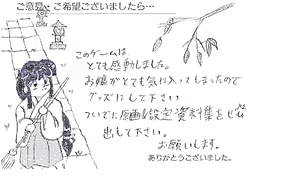 ご意見、ご希望ございましたら…
このゲームは
とても感動しました。
お娘がとても気に入ってしまったので
グッズにして下さい
ついでに原画&設定資料集をぜひ
出して下さい。
お願いします。
ありがとうございました。